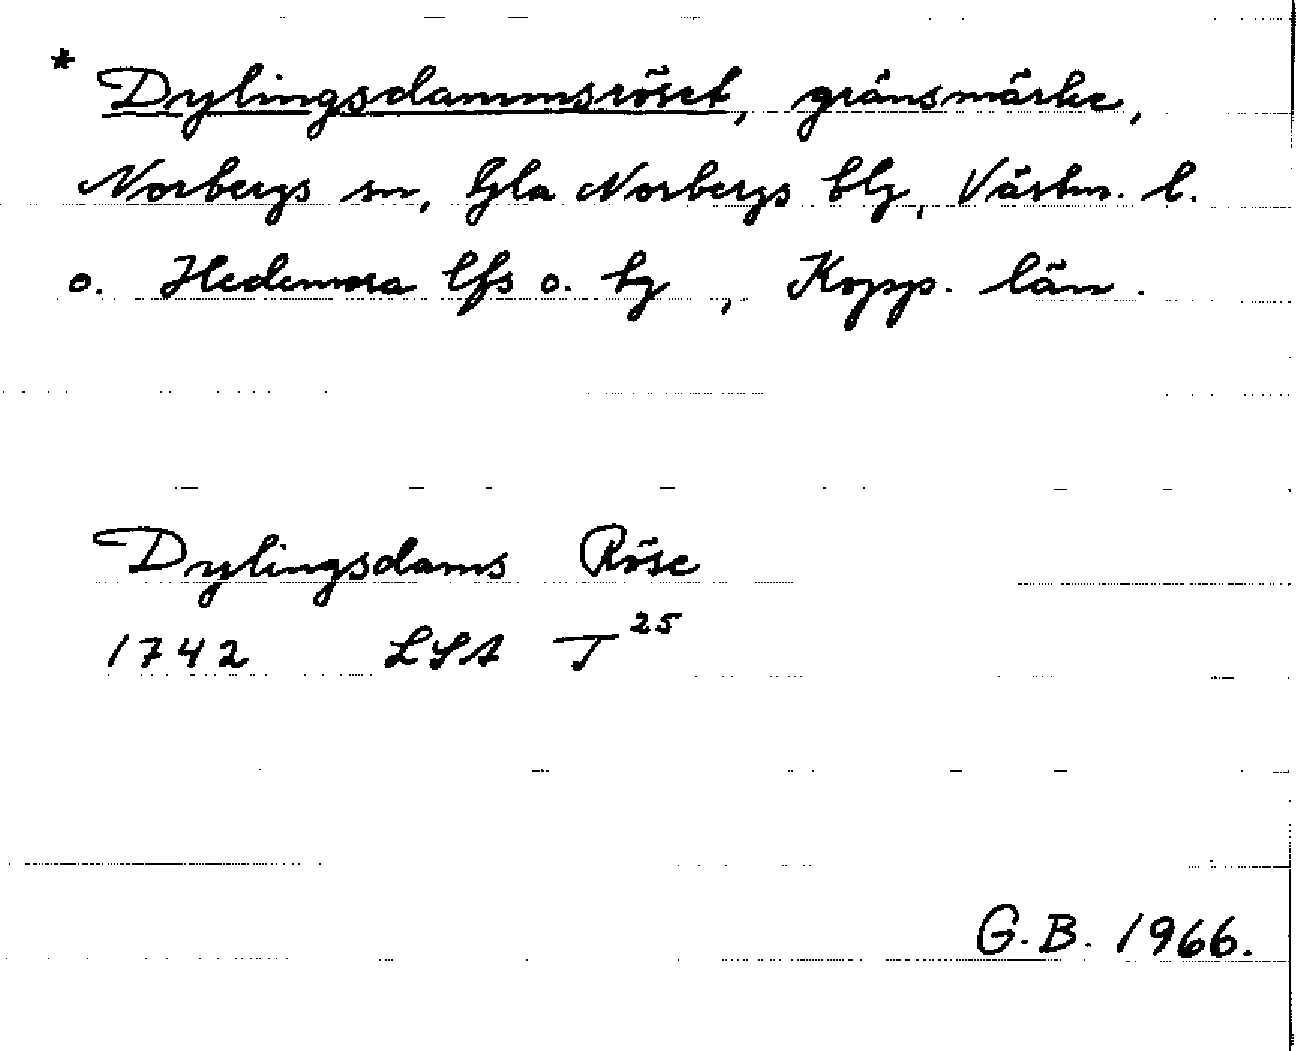 * Dylingsdammsröset, gränsmärke,
Norbergs sn, Gla Norbergs blg, Västm. l.
o. Hedemora lfs o. tg, Kopp. län.
Dylingsdams Röse
1742 LSA T 25
G.B. 1966.